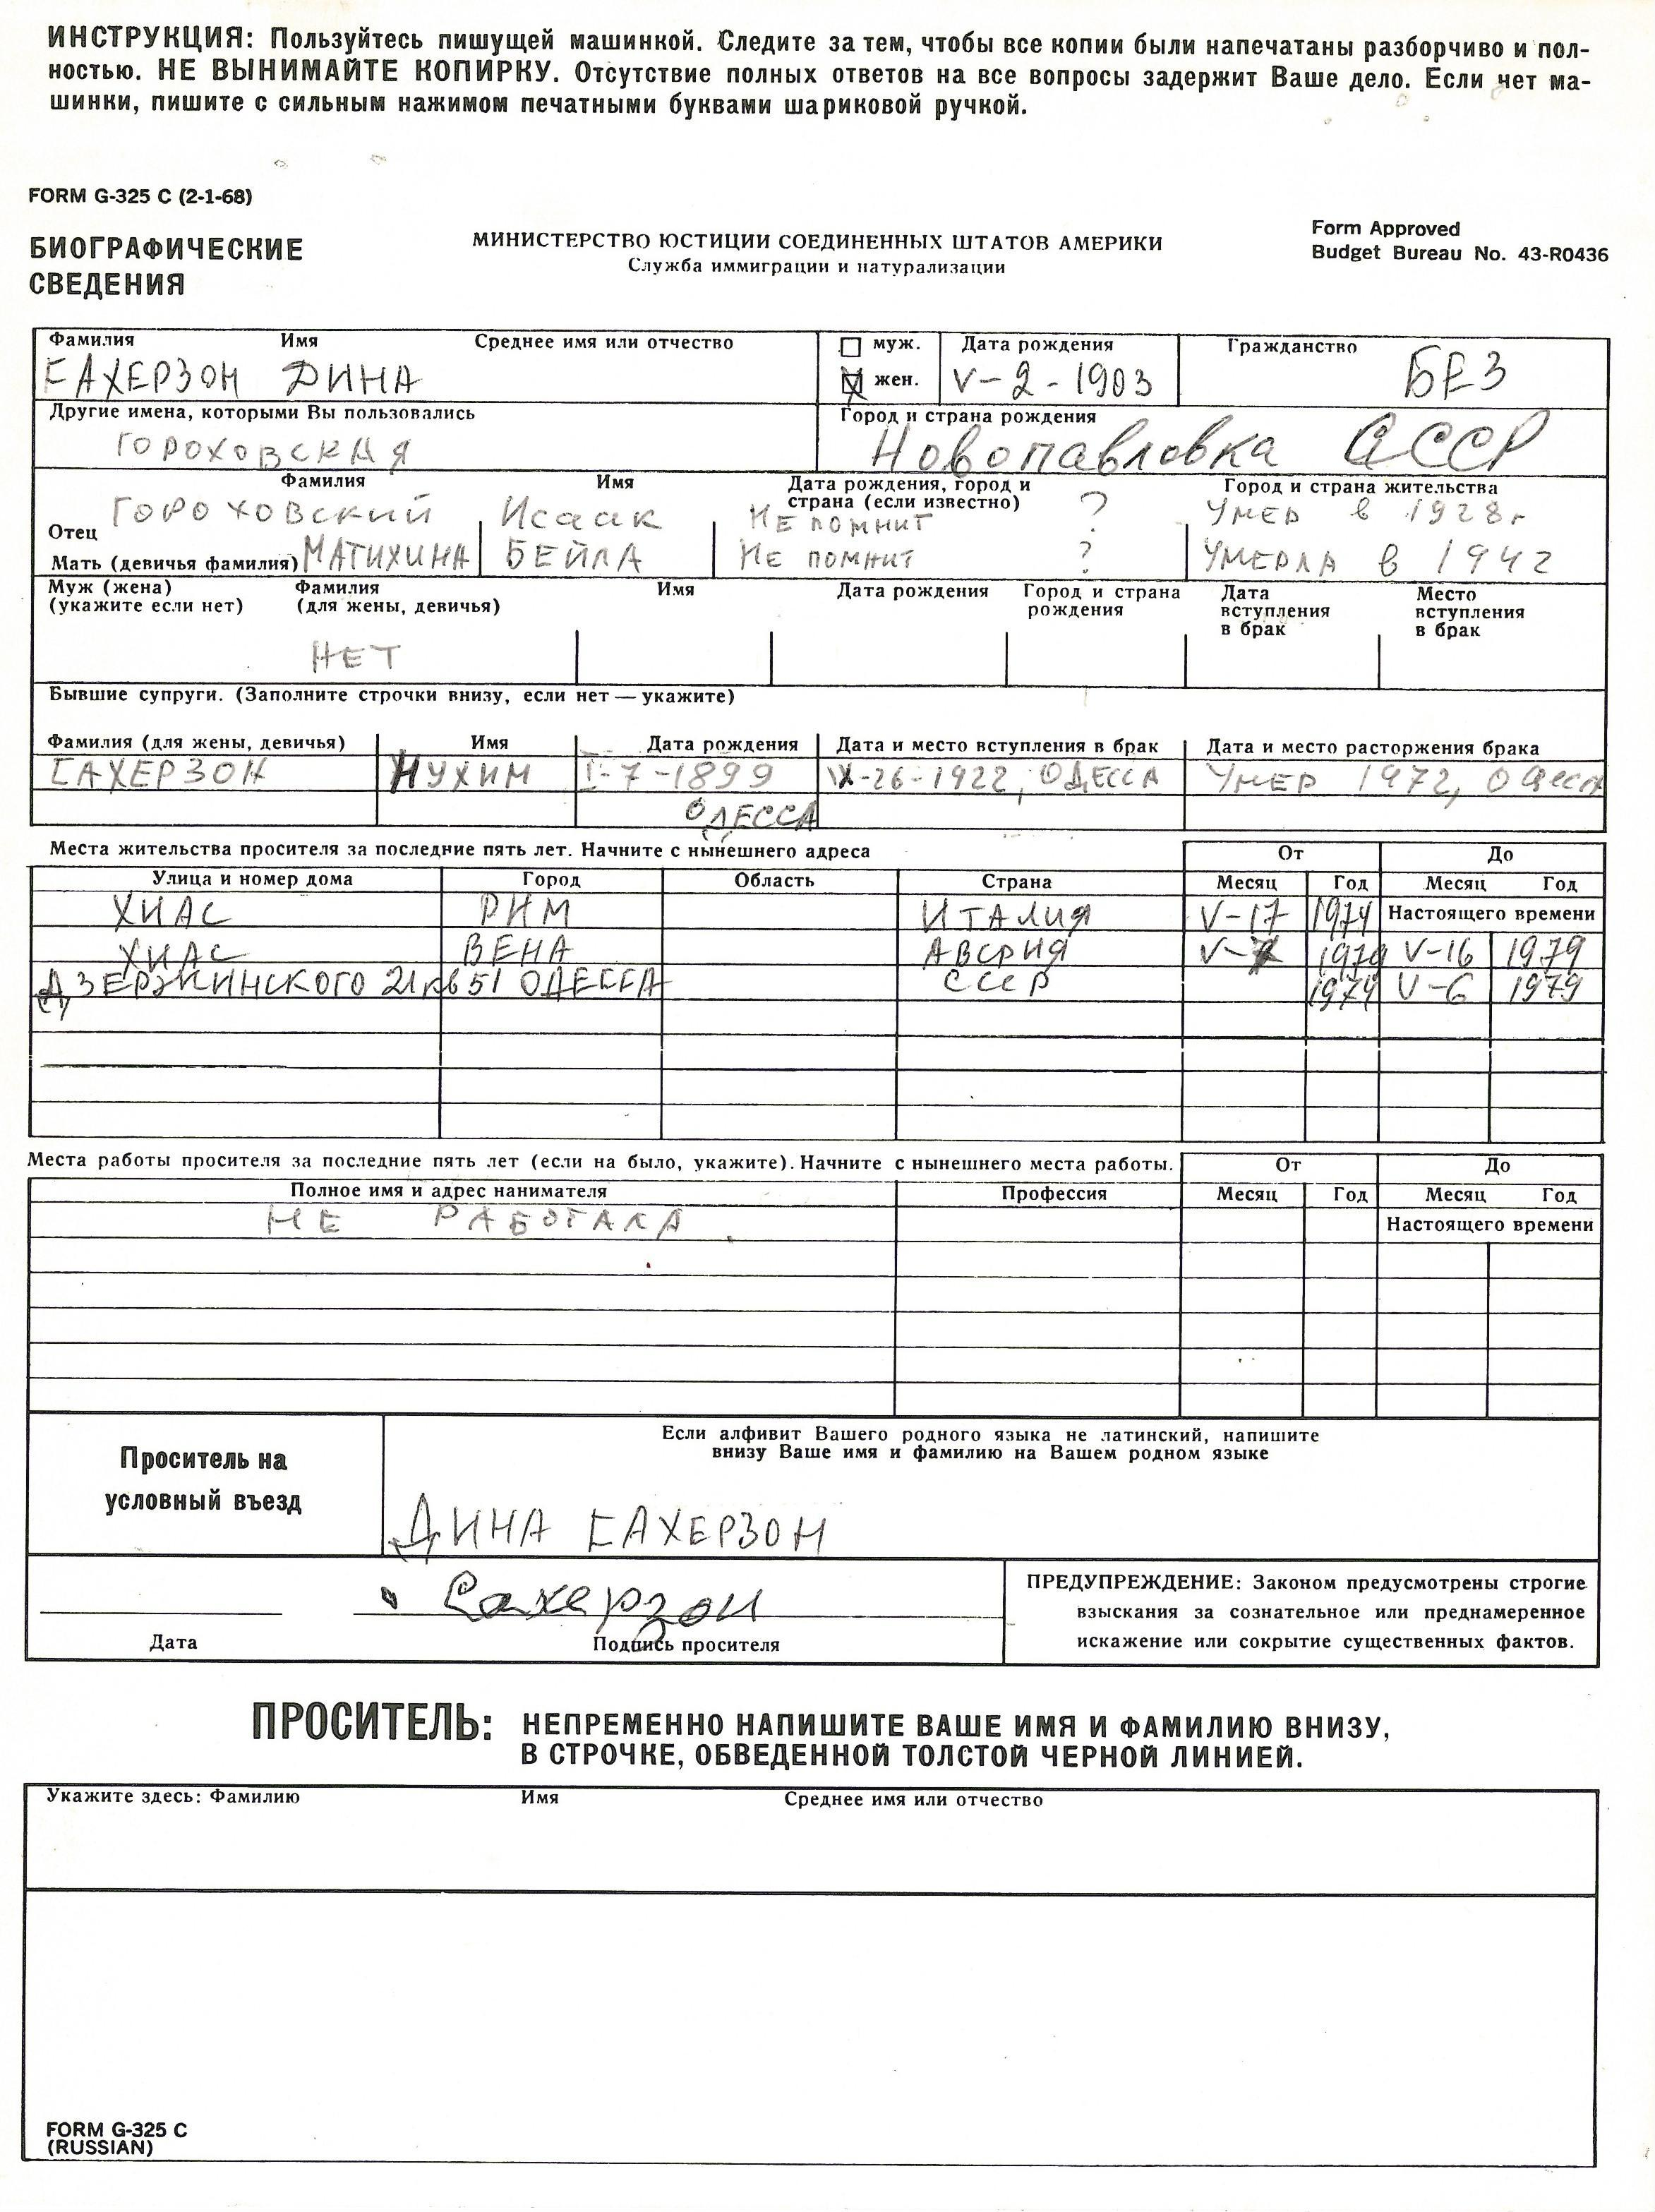 ИНСТРУКЦИЯ: Пользуйтесь пишущей машинкой. Следите за тем, чтобы все копии были напечатаны разборчиво и пол-
ностью. НЕ ВЫНИМАЙТЕ КОПИРКУ. Отсутствие полных ответов на все вопросы задержит Ваше дело. Если нет ма-
шинки, пишите с сильным нажимом печатными буквами шариковой ручкой.
FORM G-325 C (2-1-68)
БИОГРАФИЧЕСКИЕ
СВЕДЕНИЯ
МИНИСТЕРСТВО ЮСТИЦИИ СОЕДИНЕННЫХ ШТАТОВ АМЕРИКИ
Служба иммиграции и натурализации
Form Approved
Budget Bureau No. 43-R0436
Фамилия Имя Среднее имя или отчество муж. Дата рождения Гражданство
САХЕРЗОН ДИНА жен. V-2-1903 БЕЗ
Другие имена, которыми Вы пользовались Город и страна рождения
ГОРОХОВСКАЯ Новопавловка СССР
Фамилия Имя Дата рождения, город и Город и страна жительства
страна (если известно)
Отец ГОРОХОВСКИЙ Исаак НЕ ПОМНИТ ? Умер в 1928г
Мать (девичья фамилия) МАТИХИНА БЕЙЛА НЕ ПОМНИТ ? УМЕРЛА В 1942
Муж (жена) Фамилия Имя Дата рождения Город и страна Дата Место
(укажите если нет) (для жены, девичья) рождения вступления вступления
в брак в брак
НЕТ
Бывшие супруги. (Заполните строчки внизу, если нет — укажите)
Фамилия (для жены, девичья) Имя Дата рождения Дата и место вступления в брак Дата и место расторжения брака
САХЕРЗОН НУХИМ I-7-1899 IX-26-1922, ОДЕССА УМЕР 1972, Одесса
ОДЕССА
Места жительства просителя за последние пять лет. Начните с нынешнего адреса От До
Улица и номер дома Город Область Страна Месяц Год Месяц Год
ХИАС РИМ ИТАЛИЯ V-17 1979 Настоящего времени
ХИАС ВЕНА АВСРИЯ V-7 1979 V-16 1979
ДЗЕРЖИНСКОГО 21 кв 51 ОДЕССА СССР 1974 V-6 1979
Места работы просителя за последние пять лет (если на было, укажите). Начните с нынешнего места работы. От До
Полное имя и адрес нанимателя Профессия Месяц Год Месяц Год
НЕ РАБОТАЛА Настоящего времени
Проситель на
условный въезд
Если алфивит Вашего родного языка не латинский, напишите
внизу Ваше имя и фамилию на Вашем родном языке
ДИНА САХЕРЗОН
Сахерзон
Дата Подпись просителя
ПРЕДУПРЕЖДЕНИЕ: Законом предусмотрены строгие
взыскания за сознательное или преднамеренное
искажение или сокрытие существенных фактов.
ПРОСИТЕЛЬ: НЕПРЕМЕННО НАПИШИТЕ ВАШЕ ИМЯ И ФАМИЛИЮ ВНИЗУ,
В СТРОЧКЕ, ОБВЕДЕННОЙ ТОЛСТОЙ ЧЕРНОЙ ЛИНИЕЙ.
Укажите здесь: Фамилию Имя Среднее имя или отчество
FORM G-325 C
(RUSSIAN)